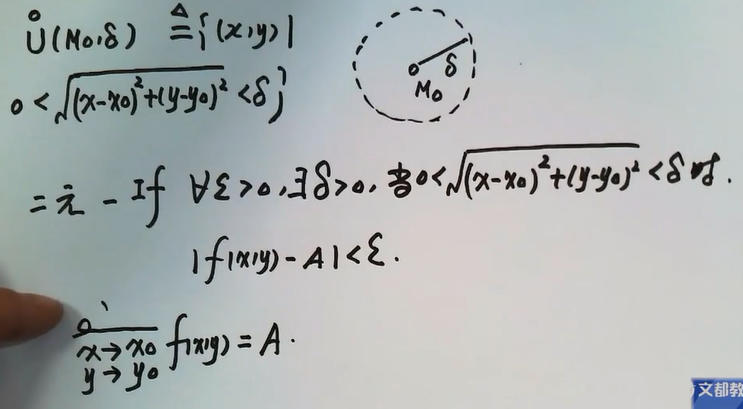 Ů(M₀,δ) ≜ {(x,y)|
0<√((x-x₀)²+(y-y₀)²) <δ}
δ
M₀
=元 - If ∀ε>0,∃δ>0,当0<√((x-x₀)²+(y-y₀)²) <δ时.
|f(x,y)-A|<ε.
x→x₀ f(x,y)=A.
y→y₀
文都教